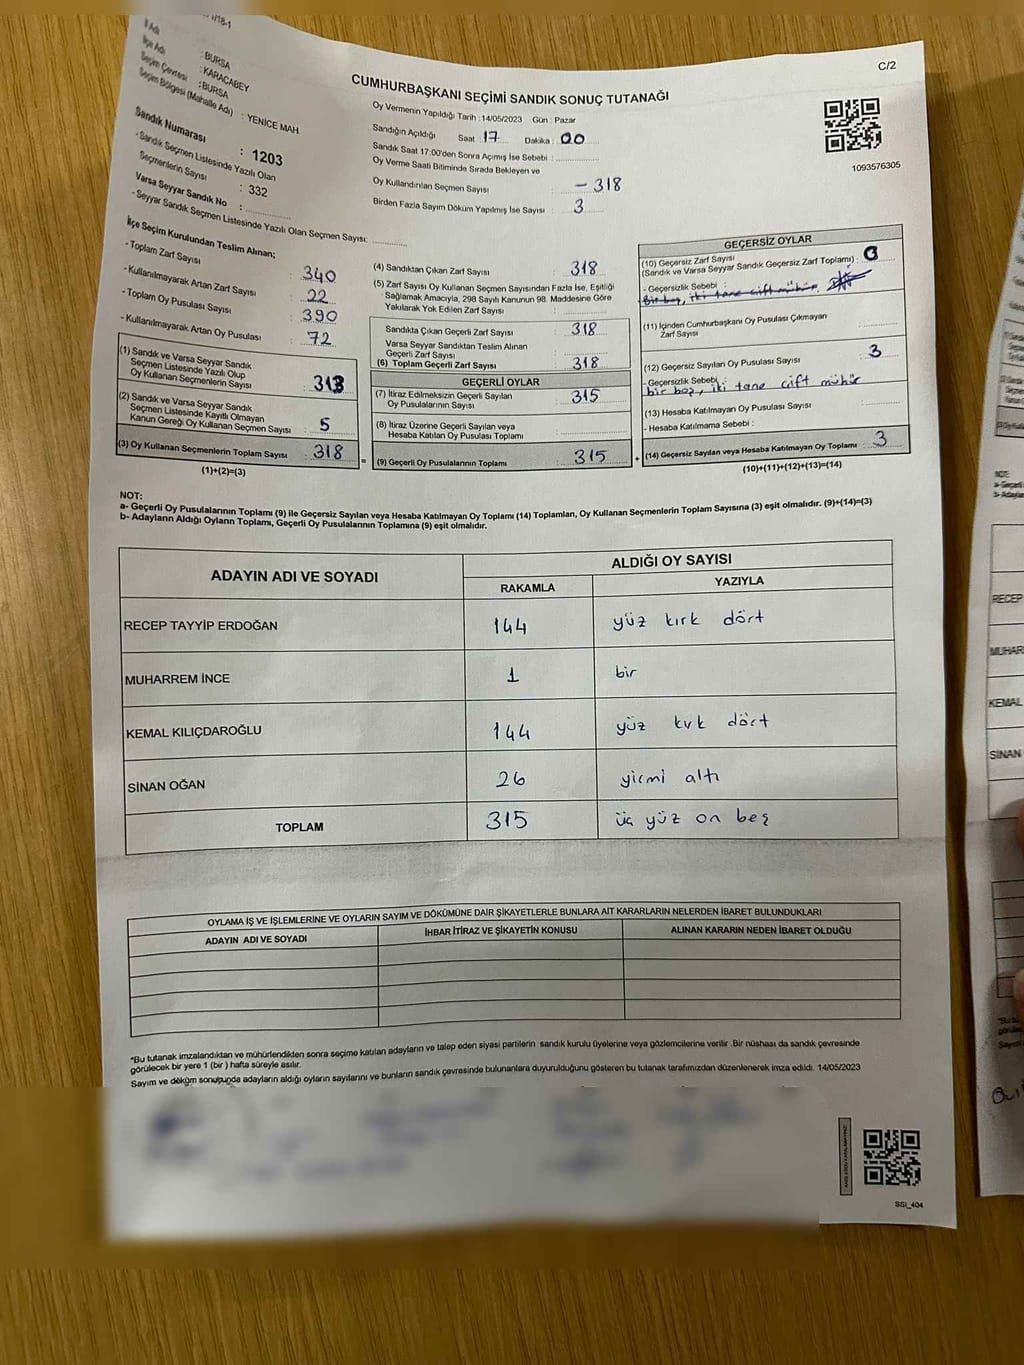 1/18-1
İl Adı : BURSA
İlçe Adı : KARACABEY
Seçim Çevresi : BURSA
Seçim Bölgesi (Mahalle Adı) : YENİCE MAH.
Sandık Numarası : 1203
- Sandık Seçmen Listesinde Yazılı Olan
Seçmenlerin Sayısı : 332
Varsa Seyyar Sandık No :
- Seyyar Sandık Seçmen Listesinde Yazılı Olan Seçmen Sayısı:
C/2
CUMHURBAŞKANI SEÇİMİ SANDIK SONUÇ TUTANAĞI
Oy Vermenin Yapıldığı Tarih : 14/05/2023 Gün : Pazar
Sandığın Açıldığı Saat : 17 Dakika : 00
Sandık Saat 17:00'den Sonra Açımış İse Sebebi :
Oy Verme Saati Bitiminde Sırada Bekleyen ve
Oy Kullandırılan Seçmen Sayısı : - 318
Birden Fazla Sayım Döküm Yapılmış İse Sayısı : 3
1093576305
İlçe Seçim Kurulundan Teslim Alınan;
- Toplam Zarf Sayısı : 340
- Kullanılmayarak Artan Zarf Sayısı : 22
- Toplam Oy Pusulası Sayısı : 390
- Kullanılmayarak Artan Oy Pusulası : 72
(1) Sandık ve Varsa Seyyar Sandık
Seçmen Listesinde Yazılı Olup
Oy Kullanan Seçmenlerin Sayısı : 313
(2) Sandık ve Varsa Seyyar Sandık
Seçmen Listesinde Kayıtlı Olmayan
Kanun Gereği Oy Kullanan Seçmen Sayısı : 5
(3) Oy Kullanan Seçmenlerin Toplam Sayısı : 318
(1)+(2)=(3)
(4) Sandıktan Çıkan Zarf Sayısı : 318
(5) Zarf Sayısı Oy Kullanan Seçmen Sayısından Fazla İse, Eşitliği
Sağlamak Amacıyla, 298 Sayılı Kanunun 98. Maddesine Göre
Yakılarak Yok Edilen Zarf Sayısı :
Sandıkta Çıkan Geçerli Zarf Sayısı : 318
Varsa Seyyar Sandıktan Teslim Alınan
Geçerli Zarf Sayısı :
(6) Toplam Geçerli Zarf Sayısı : 318
GEÇERLİ OYLAR
(7) İtiraz Edilmeksizin Geçerli Sayılan
Oy Pusulalarının Sayısı : 315
(8) İtiraz Üzerine Geçerli Sayılan veya
Hesaba Katılan Oy Pusulası Toplamı :
= (9) Geçerli Oy Pusulalarının Toplamı : 315
GEÇERSİZ OYLAR
(10) Geçersiz Zarf Sayısı
(Sandık ve Varsa Seyyar Sandık Geçersiz Zarf Toplamı) : 0
- Geçersizlik Sebebi :
Bir boş, iki tane çift mühür.
(11) İçinden Cumhurbaşkanı Oy Pusulası Çıkmayan
Zarf Sayısı :
(12) Geçersiz Sayılan Oy Pusulası Sayısı : 3
- Geçersizlik Sebebi :
bir boş, iki tane çift mühür
(13) Hesaba Katılmayan Oy Pusulası Sayısı :
- Hesaba Katılmama Sebebi :
+ (14) Geçersiz Sayılan veya Hesaba Katılmayan Oy Toplamı : 3
(10)+(11)+(12)+(13)=(14)
NOT:
a- Geçerli Oy Pusulalarının Toplamı (9) ile Geçersiz Sayılan veya Hesaba Katılmayan Oy Toplamı (14) Toplamları, Oy Kullanan Seçmenlerin Toplam Sayısına (3) eşit olmalıdır. (9)+(14)=(3)
b- Adayların Aldığı Oyların Toplamı, Geçerli Oy Pusulalarının Toplamına (9) eşit olmalıdır.
ADAYIN ADI VE SOYADI ALDIĞI OY SAYISI
RAKAMLA YAZIYLA
RECEP TAYYİP ERDOĞAN 144 yüz kırk dört
MUHARREM İNCE 1 bir
KEMAL KILIÇDAROĞLU 144 yüz kırk dört
SİNAN OĞAN 26 yirmi altı
TOPLAM 315 üç yüz on beş
OYLAMA İŞ VE İŞLEMLERİNE VE OYLARIN SAYIM VE DÖKÜMÜNE DAİR ŞİKAYETLERLE BUNLARA AİT KARARLARIN NELERDEN İBARET BULUNDUKLARI
ADAYIN ADI VE SOYADI İHBAR İTİRAZ VE ŞİKAYETİN KONUSU ALINAN KARARIN NEDEN İBARET OLDUĞU
*Bu tutanak imzalandıktan ve mühürlendikten sonra seçime katılan adayların ve talep eden siyasi partilerin sandık kurulu üyelerine veya gözlemcilerine verilir .Bir nüshası da sandık çevresinde
görülecek bir yere 1 (bir ) hafta süreyle asılır.
Sayım ve döküm sonuçunda adayların aldığı oyların sayılarını ve bunların sandık çevresinde bulunanlara duyurulduğunu gösteren bu tutanak tarafımızdan düzenlenerek imza edildi. 14/05/2023
SSI_404
NOT:
a- Geçerli
b- Adayların
RECEP
MUHAR
KEMAL
SİNAN